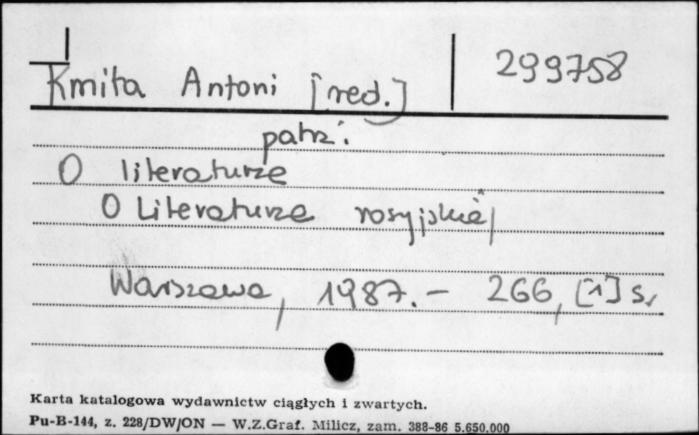 299758
Kmita Antoni [red.]
patrz:
O literaturze
O Literaturze rosyjskiej
Warszawa, 1987.- 266, [1] s.
Karta katalogowa wydawnictw ciągłych i zwartych.
Pu-B-144, z. 228/DW/ON — W.Z.Graf. Milicz, zam. 388-86 5.650.000